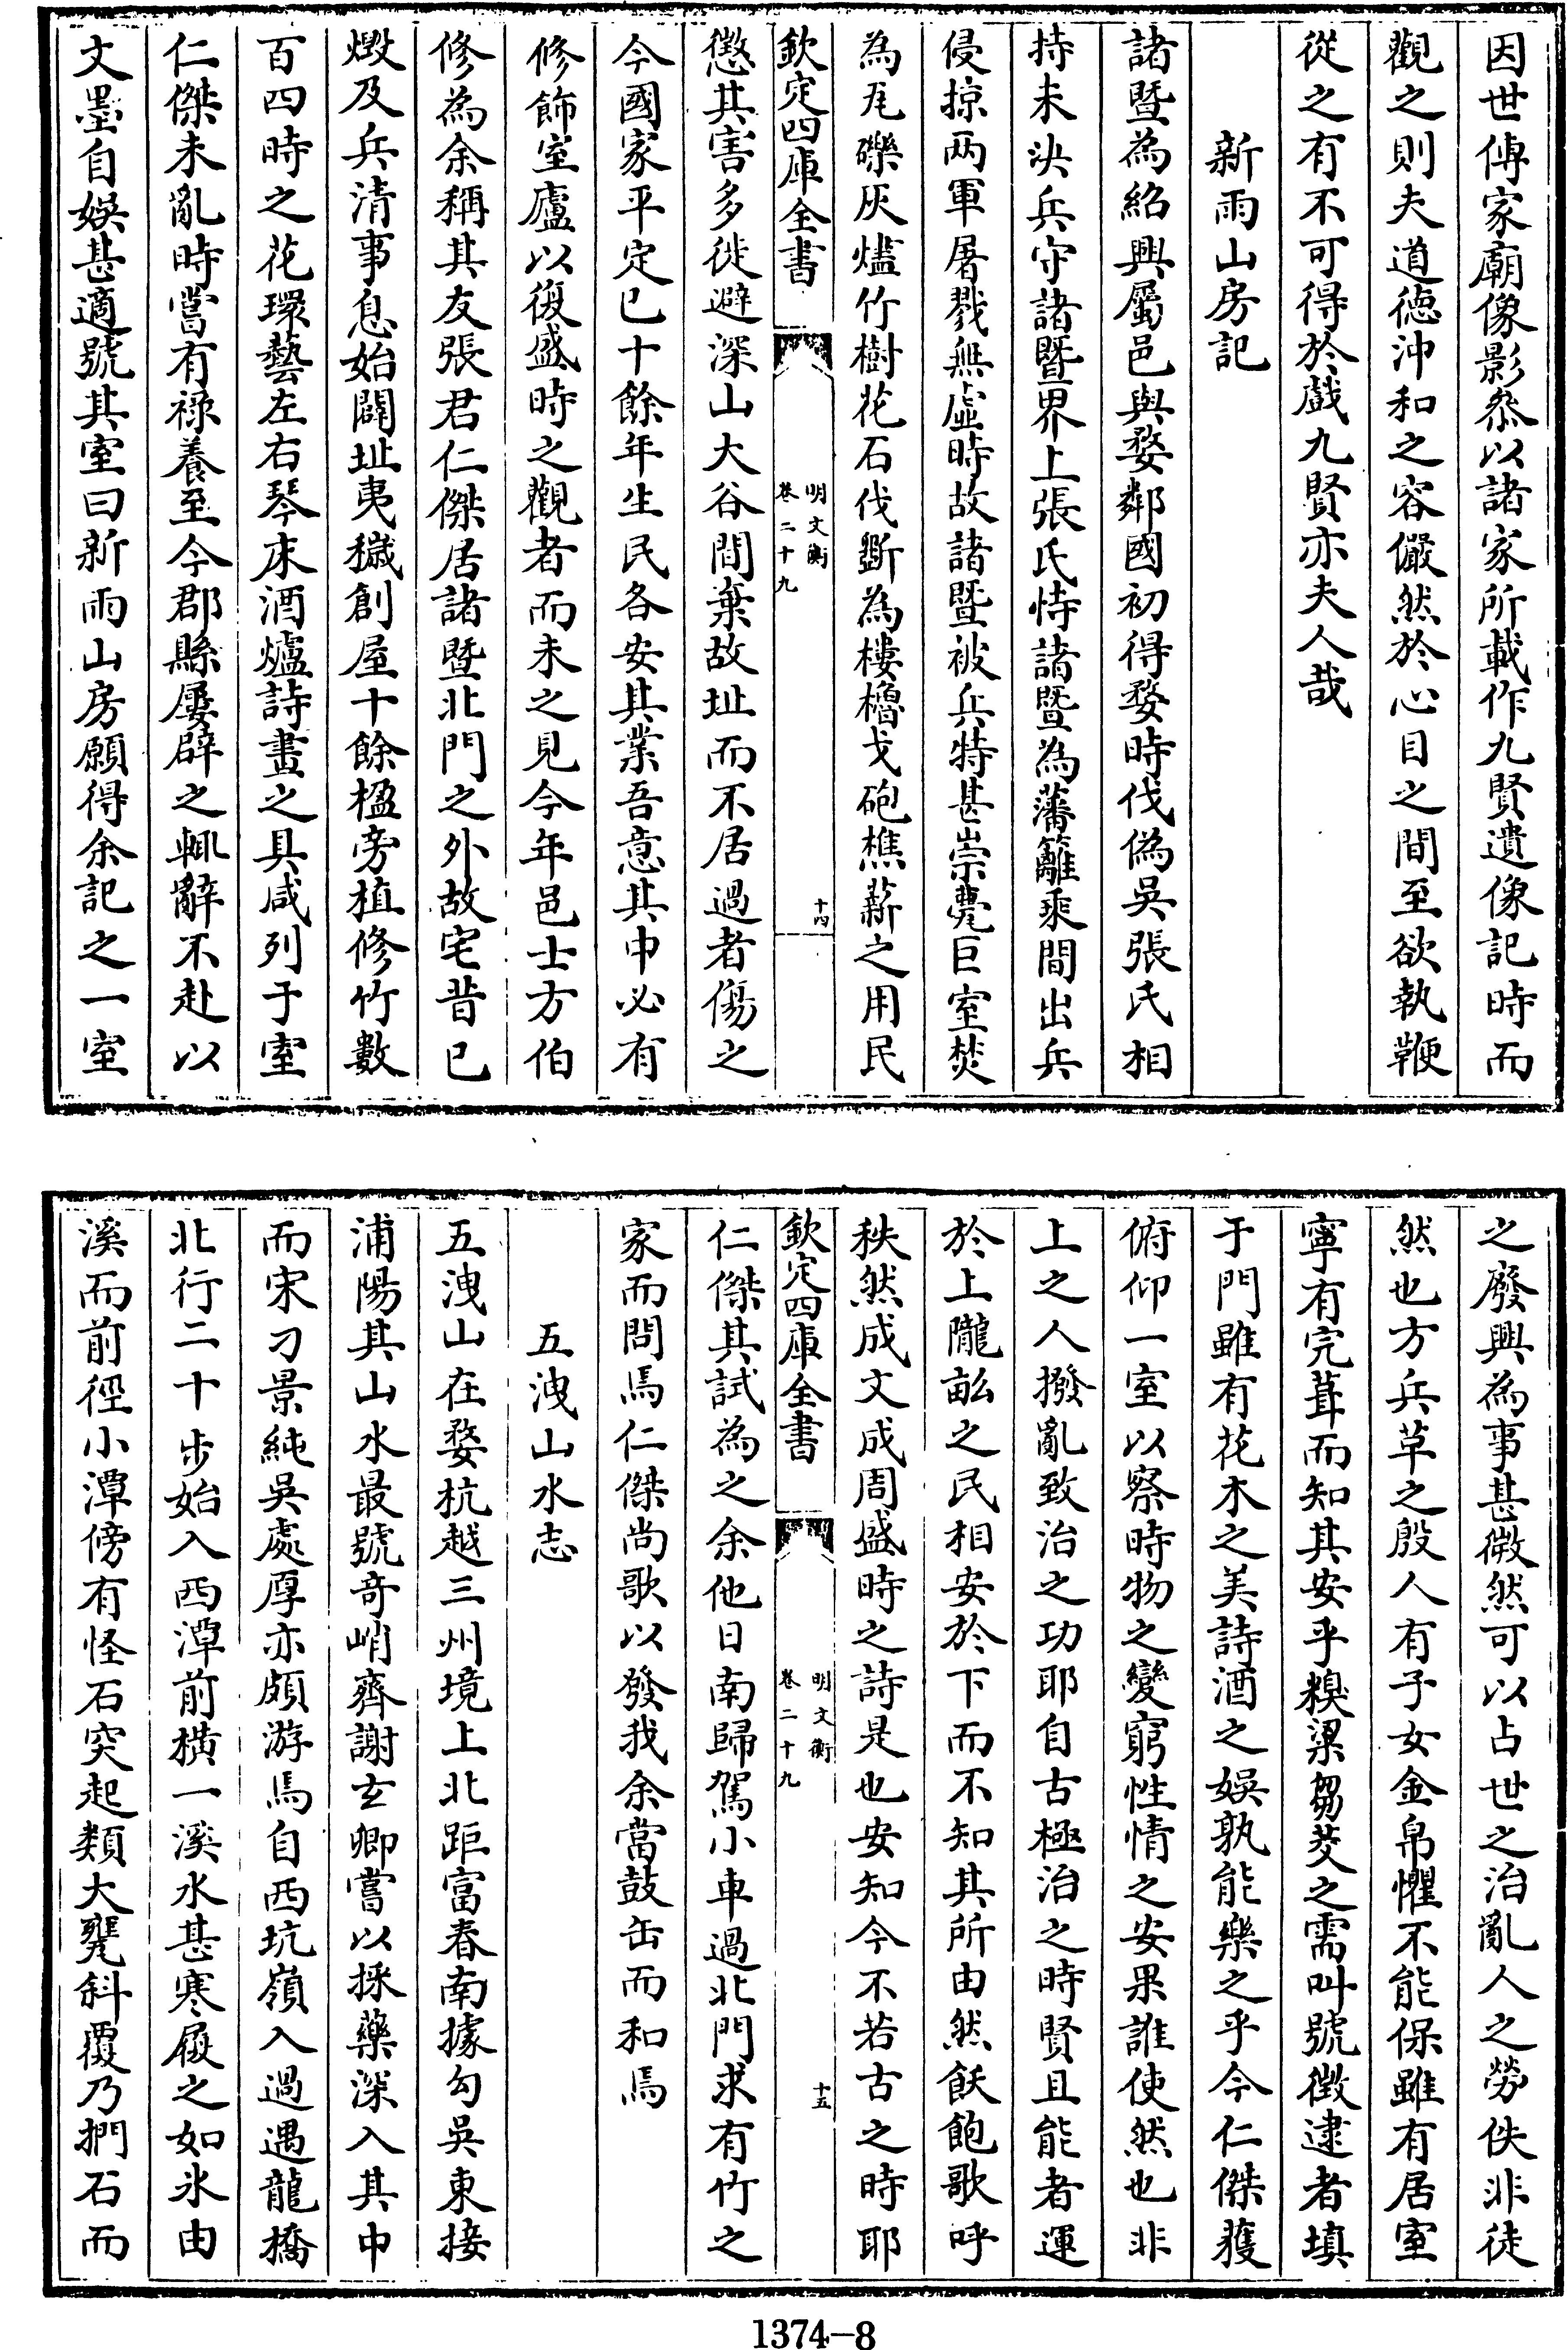 因世傳家廟像影叅以諸家所載作九賢遺像記時而
觀之則夫道德沖和之容儼然於心目之間至欲執鞭
從之有不可得於戲九賢亦夫人哉
新雨山房記
諸暨為紹興屬邑與婺鄰國初得婺時伐偽吳張氏相
持未決兵守諸暨界上張氏恃諸暨為藩籬乘間出兵
侵掠两軍屠戮無虛時故諸暨被兵特甚崇甍巨室焚
為瓦礫灰燼竹樹花石伐斲為樓櫓戈砲樵薪之用民
欽定四庫全書
明文衡
卷二十九
十四
懲其害多徙避深山大谷間棄故址而不居過者傷之
今國家平定已十餘年生民各安其業吾意其中必有
修飾室廬以復盛時之觀者而未之見今年邑士方伯
修為余稱其友張君仁傑居諸暨北門之外故宅昔已
燬及兵清事息始闢址夷穢創屋十餘楹旁植修竹數
百四時之花環藝左右琴床酒爐詩畫之具咸列于室
仁傑未亂時嘗有祿養至今郡縣屢辟之輒辭不赴以
文墨自娛甚適號其室曰新雨山房願得余記之一室
之廢興為事甚微然可以占世之治亂人之勞佚非徒
然也方兵革之殷人有子女金帛懼不能保雖有居室
寧有完葺而知其安乎糗粱芻茭之需叫號徵逮者填
于門雖有花木之美詩酒之娛孰能樂之乎今仁傑獲
俯仰一室以察時物之變窮性情之安果誰使然也非
上之人撥亂致治之功耶自古極治之時賢且能者運
於上隴畝之民相安於下而不知其所由然飫飽歌呼
秩然成文成周盛時之詩是也安知今不若古之時耶
欽定四庫全書
明文衡
卷二十九
十五
仁傑其試為之余他日南歸駕小車過北門求有竹之
家而問焉仁傑尚歌以發我余當鼓缶而和焉
五洩山水志
五洩山在婺杭越三州境上北距富春南據勾吳東接
浦陽其山水最號奇峭齊謝玄卿嘗以採藥深入其中
而宋刁景純吳處厚亦頗游焉自西坑嶺入過遇龍橋
北行二十步始入西潭前橫一溪水甚寒履之如氷由
溪而前徑小潭傍有怪石突起類大甕斜覆乃捫石而
1374-8